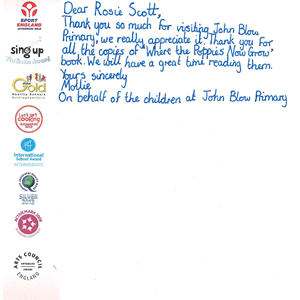 SPORT
ENGLAND
sing up
Gold
Healthy Schools
LET'S GET
COOKING
International
School Award
INTERMEDIATE
SILVER
ACTIVEMARK 2008
ARTS COUNCIL
ENGLAND
Dear Rosie Scott,
Thank you so much for visiting John Blow
Primary, we really appreciate it. Thank you for
all the copies of "Where the Poppies Now Grow"
book. We will have a great time reading them.
Yours sincerely
Mollie
On behalf of the children at John Blow Primary